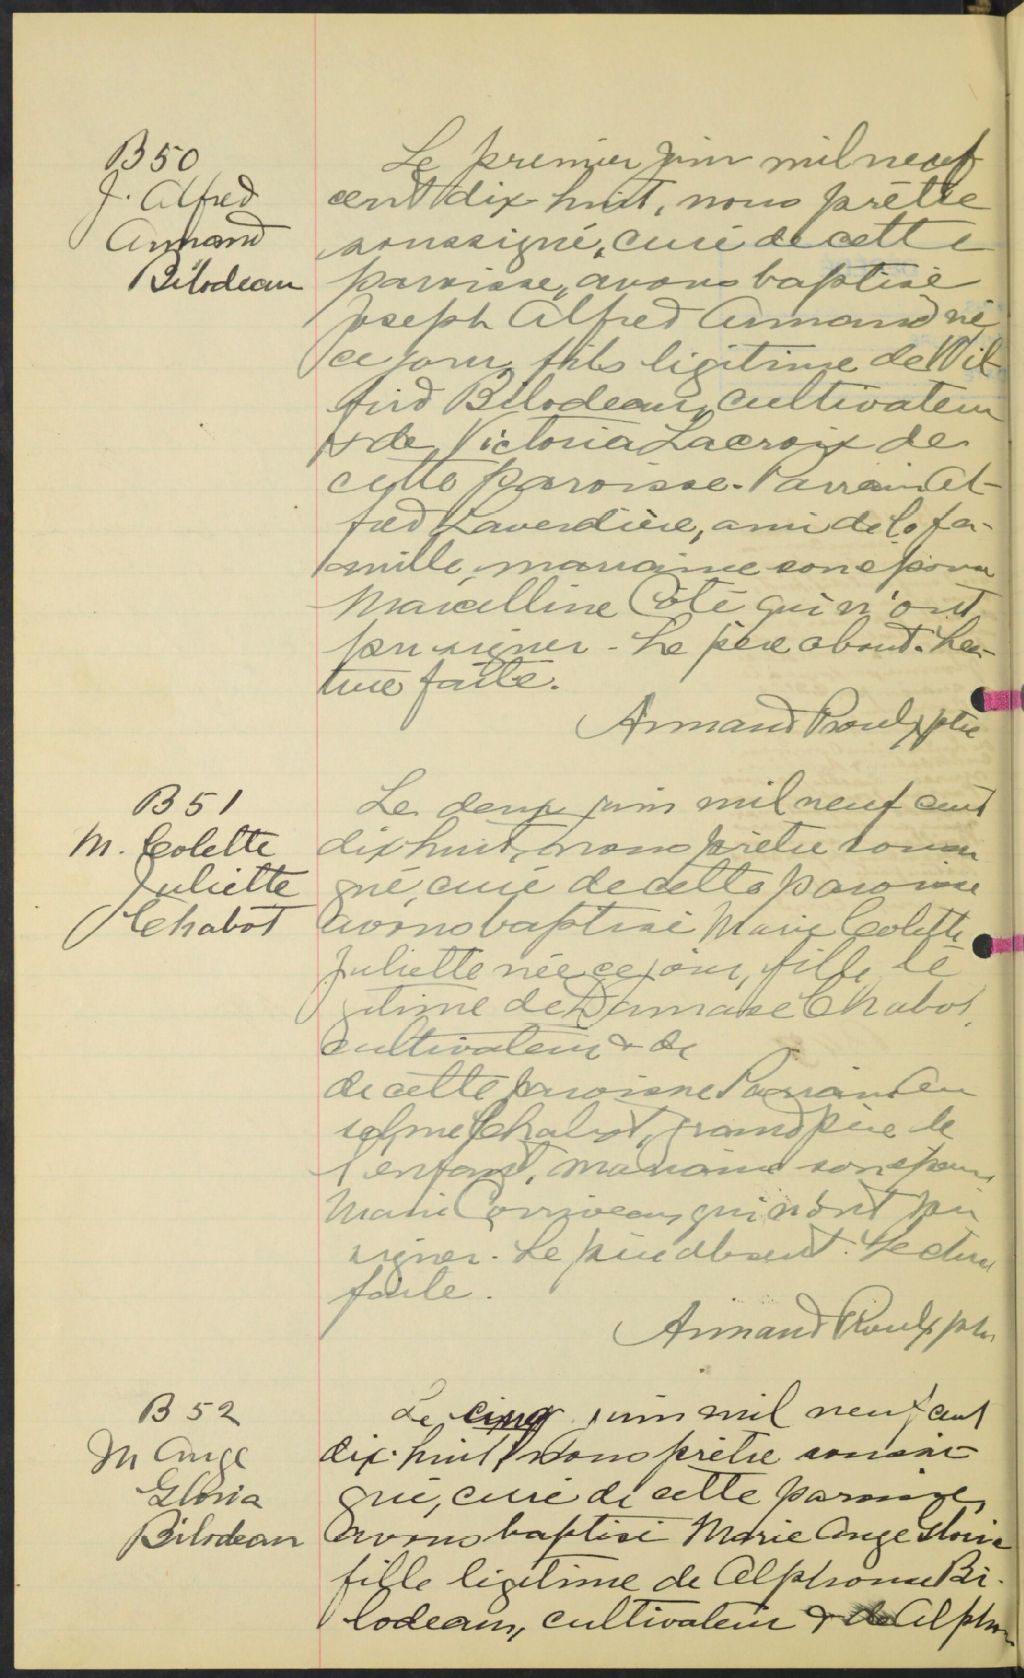 B 50
J. Alfred
Armand
Bilodeau
Le premier juin mil neuf
cent dix-huit, nous prêtre
soussigné, curé de cette
paroisse, avons baptisé
Joseph Alfred Armand né
ce jour, fils légitime de Wil-
frid Bilodeau, cultivateur
& de Victoria Lacroix de
cette paroisse. Parrain Al-
fred Laverdière, ami de la fa-
mille, marraine son épouse
Marcelline Côté qui n'ont
pu signer - Le père absent. Lec-
ture faite.
Armand Proulx ptre
B 51
M. Colette
Juliette
Chabot
Le deux juin mil neuf cent
dix huit, nous prêtre soussi
gné, curé de cette paroisse
avons baptisé Marie Colette
Juliette née ce jour, fille lé
gitime de Damase Chabot,
cultivateur & de
de cette paroisse Parrain An
selme Chabot, grand père de
l'enfant, marraine son épouse,
Marie Corriveau, qui n'ont pu
signer. Le père absent. Lecture
faite.
Armand Proulx ptre
B 52
M Ange
Gloria
Bilodeau
Le cinq juin mil neuf cent
dix-huit, Nous prêtre soussi-
gné, curé de cette paroisse,
avons baptisé Marie Ange Gloria
fille légitime de Alphonse Bi-
lodeau, cultivateur & de Alphon